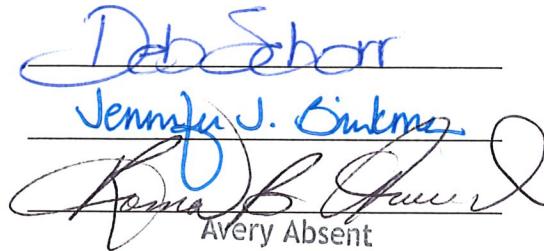 Deb Schorr
Jennifer J. Brinkman
Roma B
Avery Absent